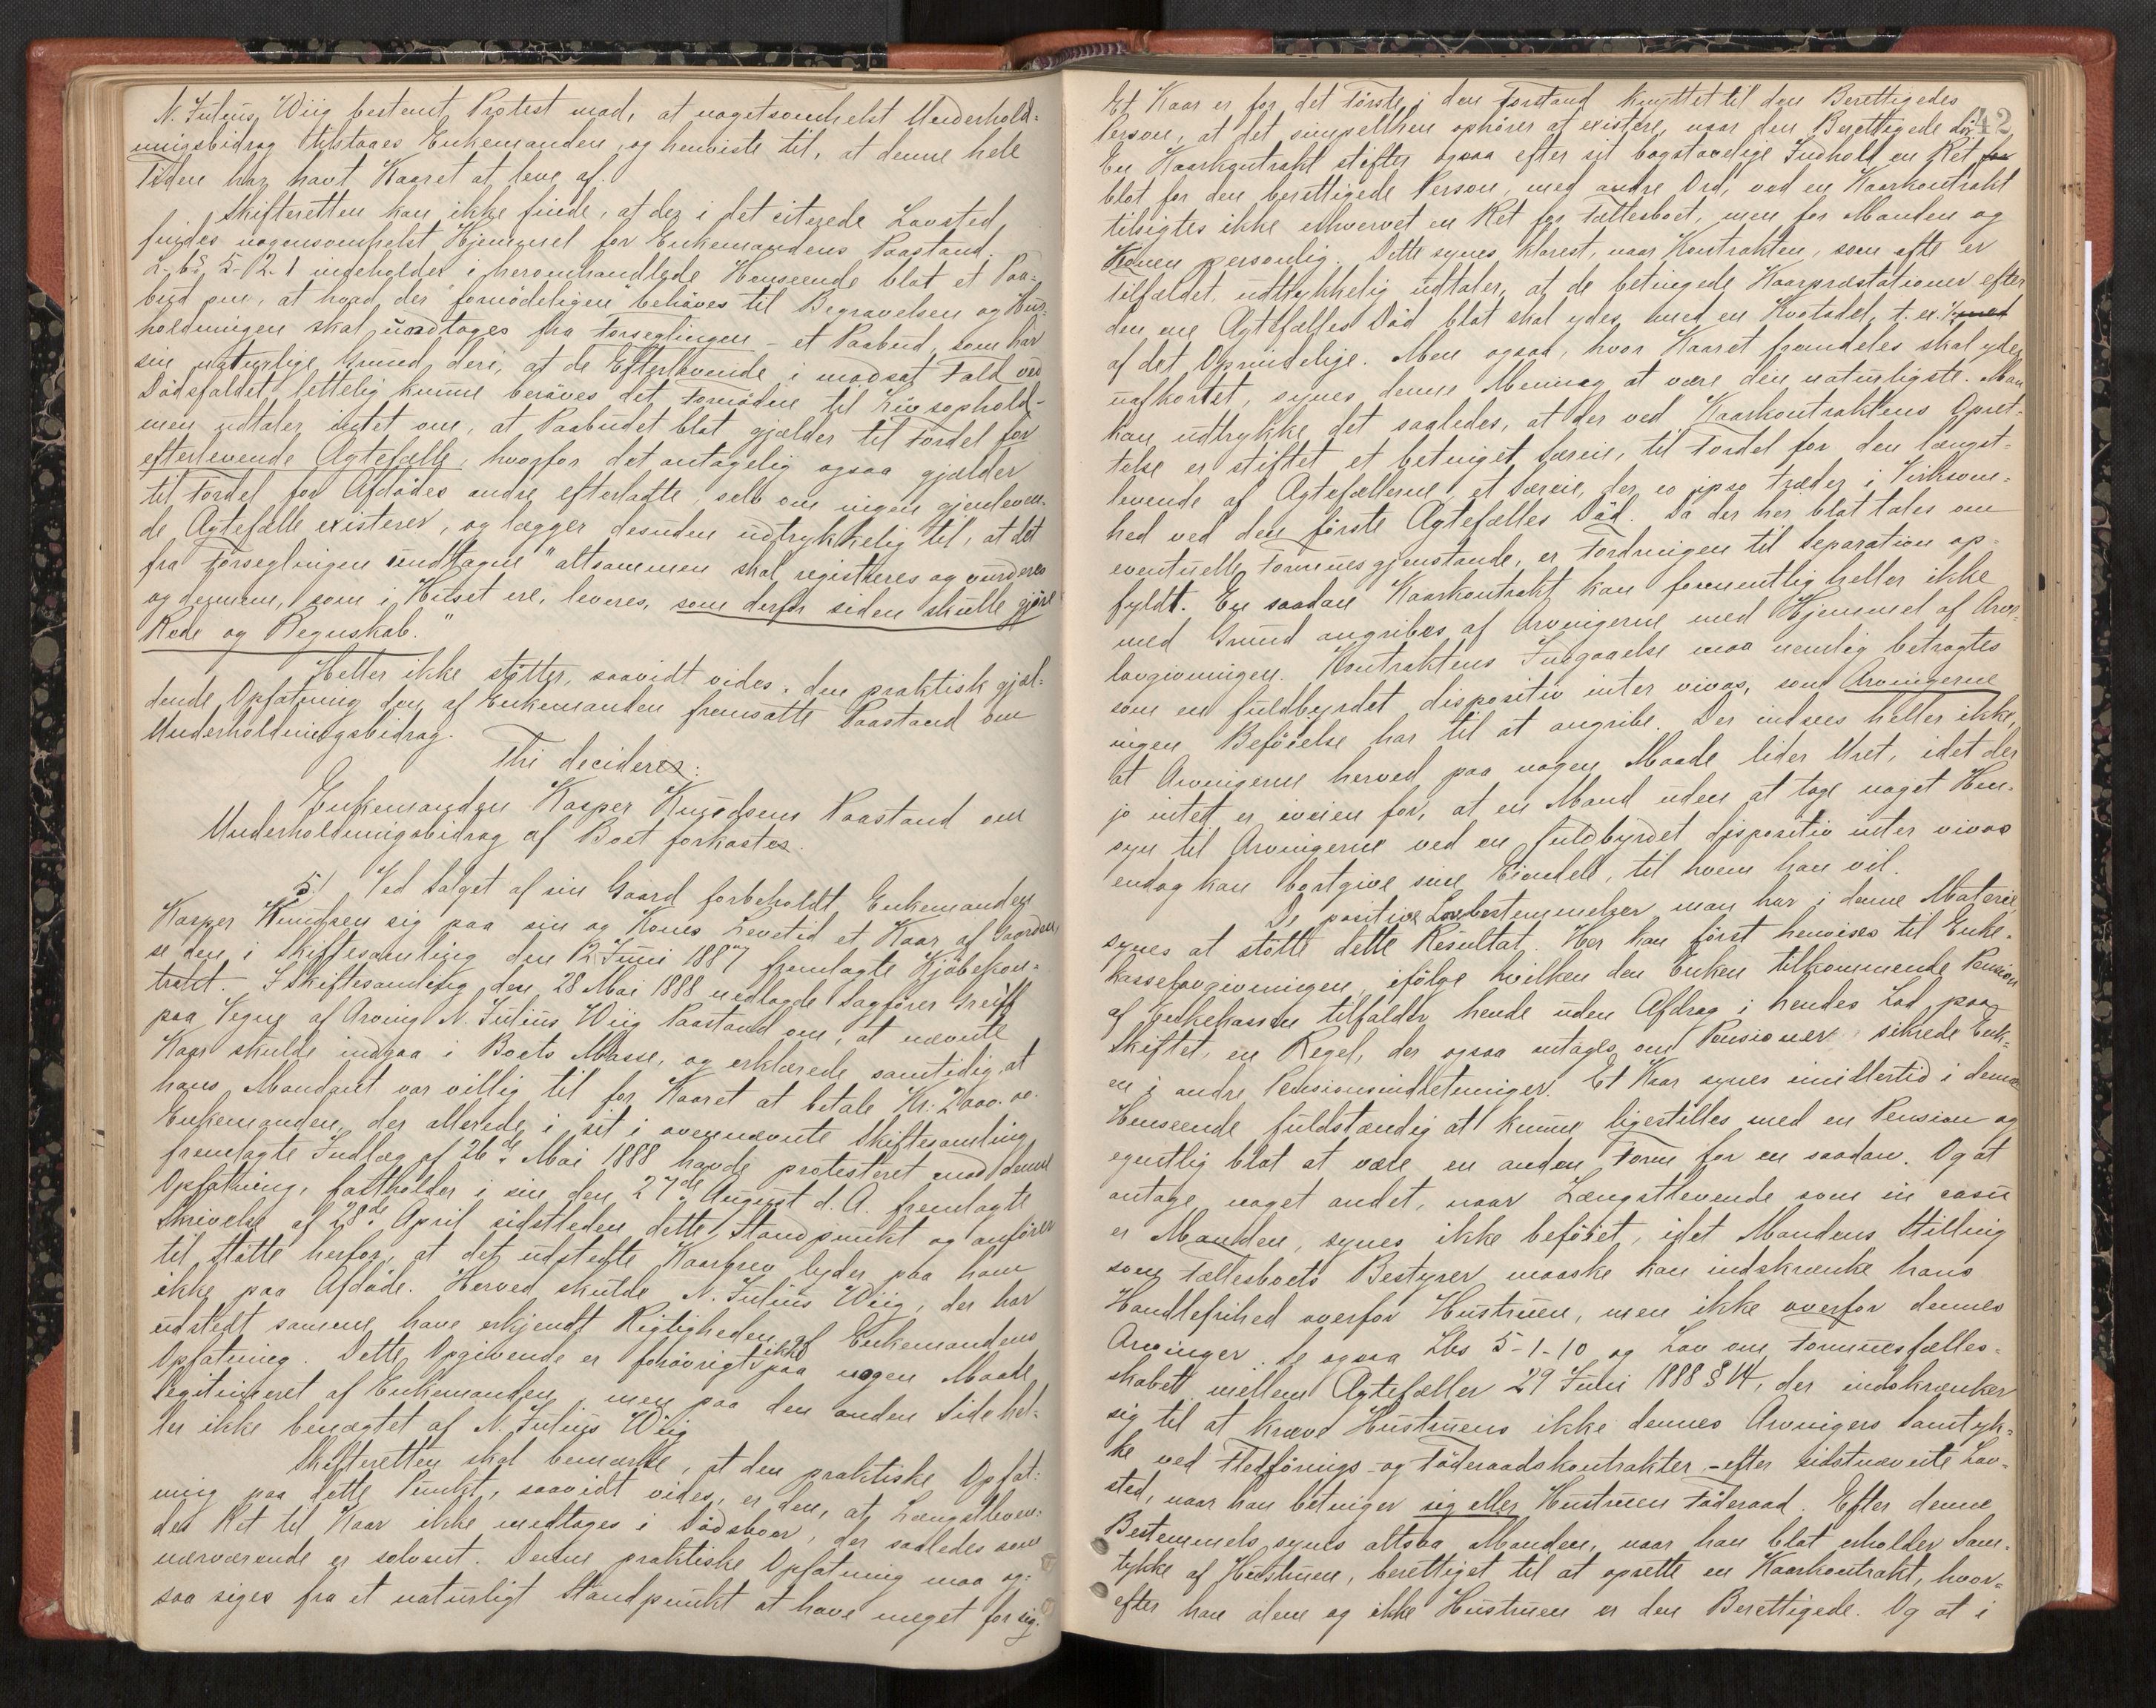 N. Julius Wiig bestemt Protest mod, at nogetsomhelst Underhold-
ningsbidrag tilstaaes Enkemanden, og henviste til, at denne hele
Tiden har havt Kaaret at leve af.
Skifteretten kan ikke finde, at der i det citerede Lovsted
findes nogensomhelst Hjemmel for Enkemandens Paastand.
L. bs 5-12-1 indeholder i heromhandlede Henseende blot et Paa-
bud om, at hvad der "fornödeligen" behöves til Begravelsen og Hus-
holdningen skal undtages fra Forseglingen - et Paabud, som har
sin naturlige Grund deri, at de Efterlevende i modsat Fald ved
Dödsfaldet lettelig kunne beröves det Fornödne til Livsophold -
men udtaler intet om, at Paabudet blot gjælder til Fordel for
efterlevende Ægtefælle, hvorfor det antagelig ogsaa gjælder
til Fordel for Afdödes andre efterladte selv om ingen gjenleven-
de Ægtefælle existerer, og lægger desuden udtrykkelig til, at det
fra Forseglingen undtagne "altsammen skal registreres og vurderes
og dennem, som i Huset ere, leveres, som derfor siden skulle gjöre
Rede og Regnskab."
Heller ikke stötter, saavidt vides, den praktisk gjæl-
dende Opfatning den af Enkemanden fremsatte Paastand om
Underholdningsbidrag.
Thi decideres:
Enkemanden Kasper Knudsens Paastand om
Underholdningsbidrag af Boet forkastes.
5. Ved Salget af sin Gaard forbeholdt Enkemanden
Kasper Knudsen sig paa sin og Kones Levetid et Kaar af Gaarden,
se den i Skiftesamling den 12 Juni 1887 fremlagte Kjöbekon-
trakt. I Skiftesamling den 28 Mai 1888 nedlagde Sagförer Greiff
paa Vegne af Arving N. Julius Wiig Paastand om, at nævnte
Kaar skulde indgaa i Boets Masse, og erklærede samtidig, at
hans Mandant var villig til for Kaaret at betale Kr. 2000.00.
Enkemanden, der allerede i sit i ovennævnte Skiftesamling
fremlagte Indlæg af 26de Mai 1888 havde protesteret mod denne
Opfatning, fastholder i sin den 27de August d. A. fremlagte
Skrivelse af 28de April sidstleden dette Standpunkt og anförer
til Stötte herfor, at det udstedte Kaarbrev lyder paa ham
ikke paa Afdöde. Herved skulde N. Julius Wiig, der har
udstedt samme have erkjendt Rigtigheden af Enkemandens
Opfatning. Dette Opgivende er forövrigt ikke paa nogen Maade
legitimeret af Enkemanden, men paa den anden Side hel-
ler ikke benægtet af N. Julius Wiig
Skifteretten skal bemærke, at den praktiske Opfat-
ning paa dette Punkt, saavidt vides, er den, at Længstleven-
des Ret til Kaar ikke medtages i Dödsboer, der saaledes som
nærværende er solvent. Denne praktiske Opfatning maa og-
saa siges fra et naturligt Standpunkt at have meget for sig.
42
Et Kaar er for det Förste i den Forstand knyttet til den Berettigedes
Person, at det simpelthen ophörer at existere, naar den Berettigede dör.
En Kaarkontrakt stifter ogsaa efter sit bogstavelige Indhold en Ret for
blot for den berettigede Person, med andre Ord, ved en Kaarkontrakt
tilsigtes ikke erhvervet en Ret for Fællesboet, men for Manden og
Konen personlig. Dette synes klarest, naar Kontrakten, som ofte er
Tilfældet, udtrykkelig udtaler, at de betingede Kaarpræstationer efter
den ene Ægtefælles Död blot skal ydes med en Kvotadel, t. ex. ½
af det Oprindelige. Men ogsaa, hvor Kaaret fremdeles skal ydes
uafkortet, synes denne Mening at være den naturligste. Man
kan udtrykke det saaledes, at der ved Kaarkontraktens Opret-
telse er stiftet et betinget Særeie, til Fordel for den længst-
levende af Ægtefællerne, et Særeie, der eo ipso træder i Virksom-
hed ved den förste Ægtefælles Död. Da der her blot tales om
eventuelle Formuesgjenstande, er Fordringen til Separation op-
fyldt. En saadan Kaarkontrakt kan formentlig heller ikke
med Grund angribes af Arvingerne med Hjemmel af Arve-
lovgivningen. Kontraktens Indgaaelse maa nemlig betragtes
som en fuldbyrdet dispositiv inter vivos, som Arvingerne
ingen Beföielse har til at angribe. Der indsees heller ikke,
at Arvingerne herved paa nogen Maade lider Uret, idet der
jo intet er iveien for, at en Mand uden at tage noget Hen-
syn til Arvingerne ved en fuldbyrdet dispositiv inter vivos
endog kan bortgive sine Eiendele, til hvem han vil.
De positive Lovbestemmelser man har i denne Materie
synes at stötte dette Resultat. Her kan först henvises til Enke-
kasselovgivningen, ifölge hvilken den Enken tilkommende Pension
af Enkekassen tilfalder hende uden Afdrag i hendes Lod paa
Skiftet, en Regel, der ogsaa antages om Pensioner, sikrede Enk-
en i andre Pensionsindretninger. Et Kaar synes imidlertid i denne
Henseende fuldstændig at kunne ligestilles med en Pension og
egentlig blot at være en anden Form for en saadan. Og at
antage noget andet, naar Længstlevende som in casu
er Manden, synes ikke beföiet, idet Mandens Stilling
som Fællesboets Bestyrer maaske kan indskrænke hans
Handlefrihed overfor Hustruen, men ikke overfor dennes
Arvinger. Se ogsaa Lbs 5-1-10 og Lov om Formuesfælles-
skabet mellem Ægtefæller 29 Juni 1888 § 14, der indskrænker
sig til at kræve Hustruens ikke dennes Arvingers Samtyk-
ke ved Fledförings- og Föderaadskontrakter - efter sidstnævnte Lov-
sted, naar han betinger sig eller Hustruen Föderaad. Efter denne
Bestemmels synes altsaa Manden, naar han blot erholder Sam-
tykke af Hustruen, berettiget til at oprette en Kaarkontrakt, hvor-
efter han alene og ikke Hustruen er den Berettigede. Og at i